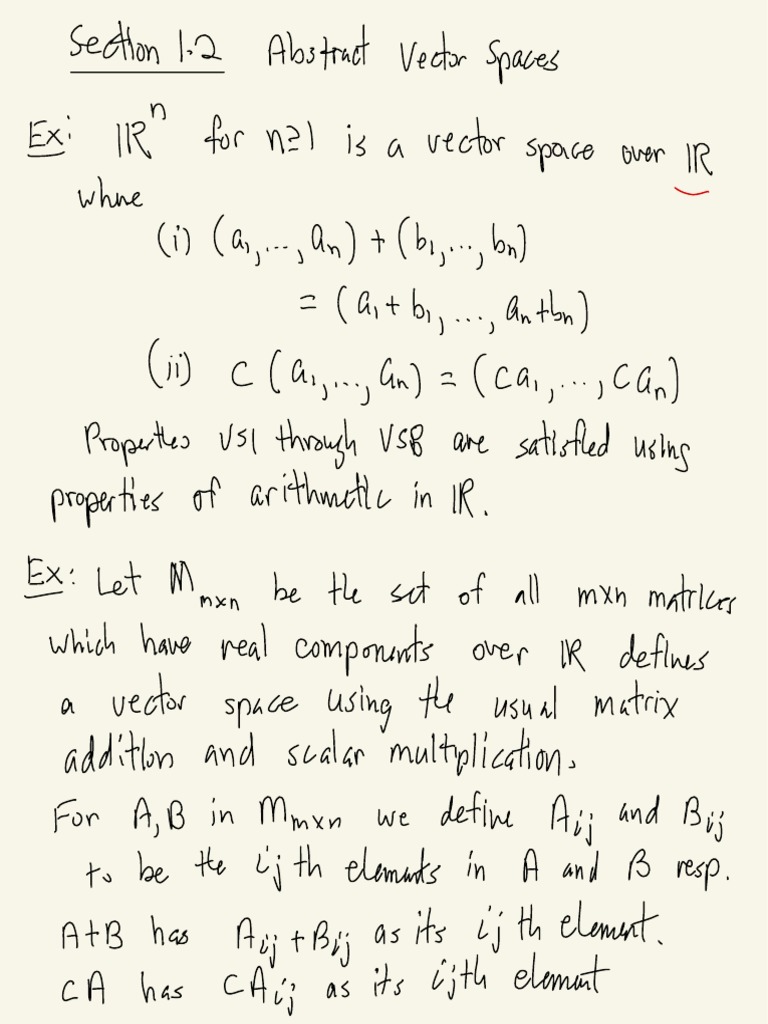 Section 1.2 Abstract Vector Spaces
Ex: ℝⁿ for n≥1 is a vector space over ℝ
where
(i) (a₁,...,aₙ) + (b₁,...,bₙ)
= (a₁+b₁,...,aₙ+bₙ)
(ii) c(a₁,...,aₙ) = (ca₁,...,caₙ)
Properties VS1 through VS8 are satisfied using
properties of arithmetic in ℝ.
Ex: Let Mₘₓₙ be the set of all mxn matrices
which have real components over ℝ defines
a vector space using the usual matrix
addition and scalar multiplication.
For A,B in Mₘₓₙ we define Aᵢⱼ and Bᵢⱼ
to be the ijth elements in A and B resp.
A+B has Aᵢⱼ+Bᵢⱼ as its ijth element.
CA has CAᵢⱼ as its ijth element